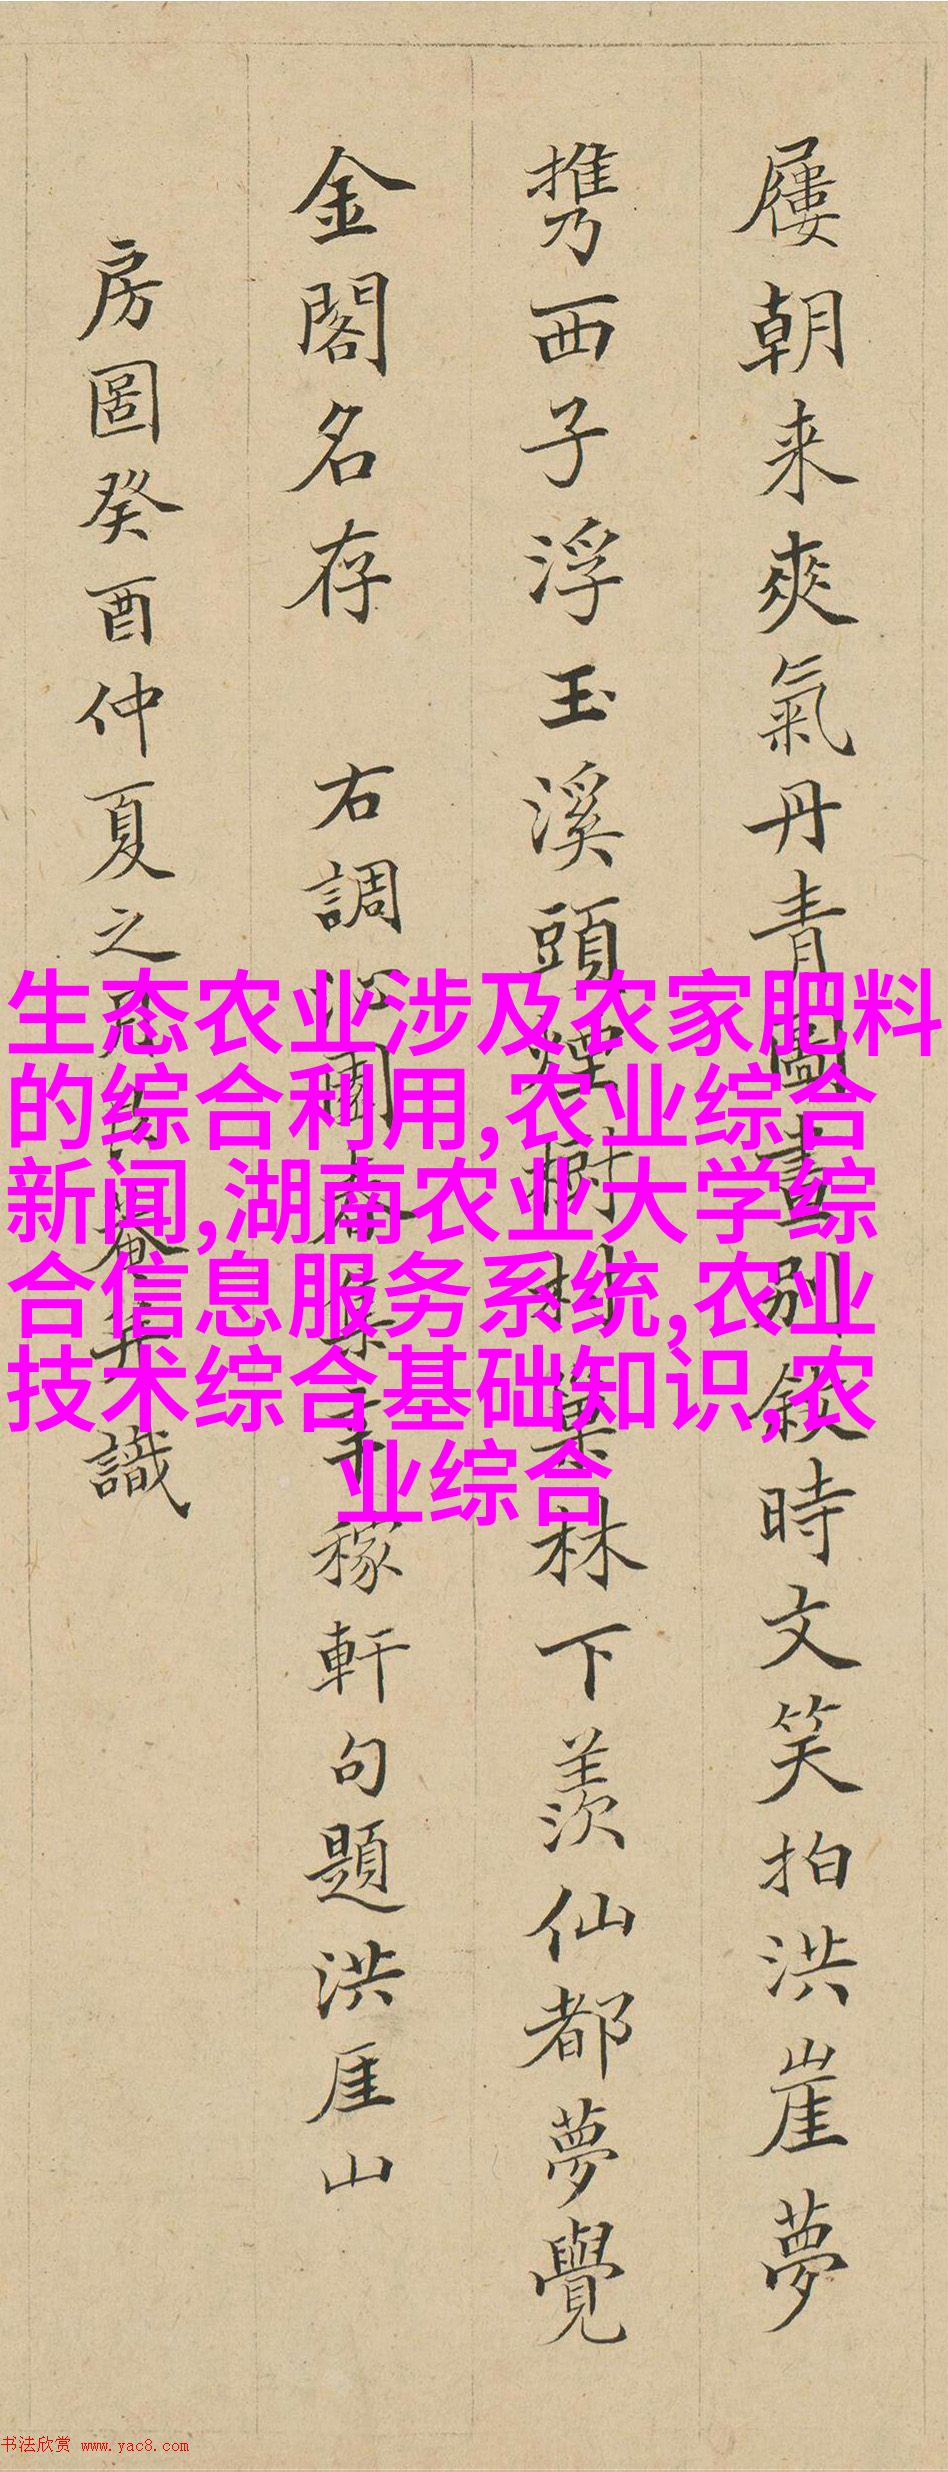 屨朝来爽氣丹青圖畫别叙時文笑拍洪崖夢
携西子浮玉溪頭煙樹村巢林下羨仙都夢覺
金閣名存 右調沁園春集辛稼軒句題洪厓山
房圖癸酉仲夏之月菴弁識
生态农业涉及农家肥料
的综合利用,农业综合
新闻,湖南农业大学综
合信息服务系统,农业
技术综合基础知识,农
业综合
书法欣赏 www.yac8.com